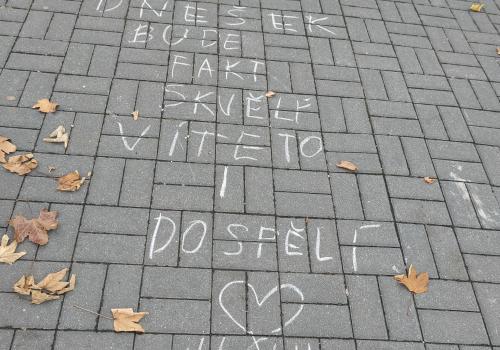 DNEŠEK
BUDE
FAKT
SKVĚLÝ
VÍTE TO
I
DOSPĚLÍ